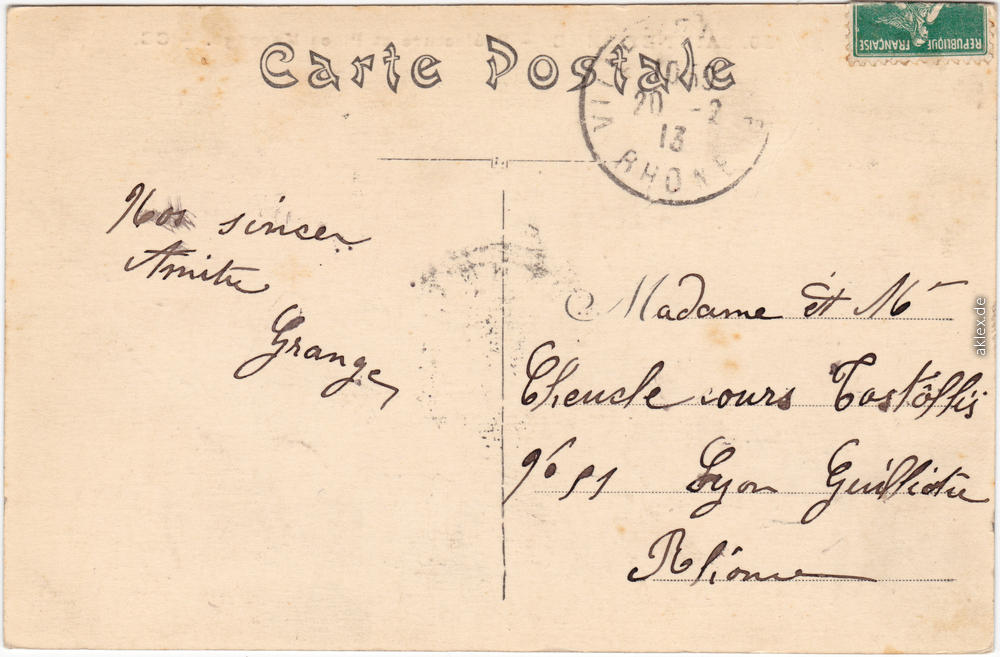 Carte Postale
REPUBLIQUE FRANÇAISE
20 -2
13
RHONE
Nos sincer
Amitie
Grange
Madame et Mr
Cheucle cours Tastôffis
No 51 Lyon Guillotie
Rhône
aklex.de